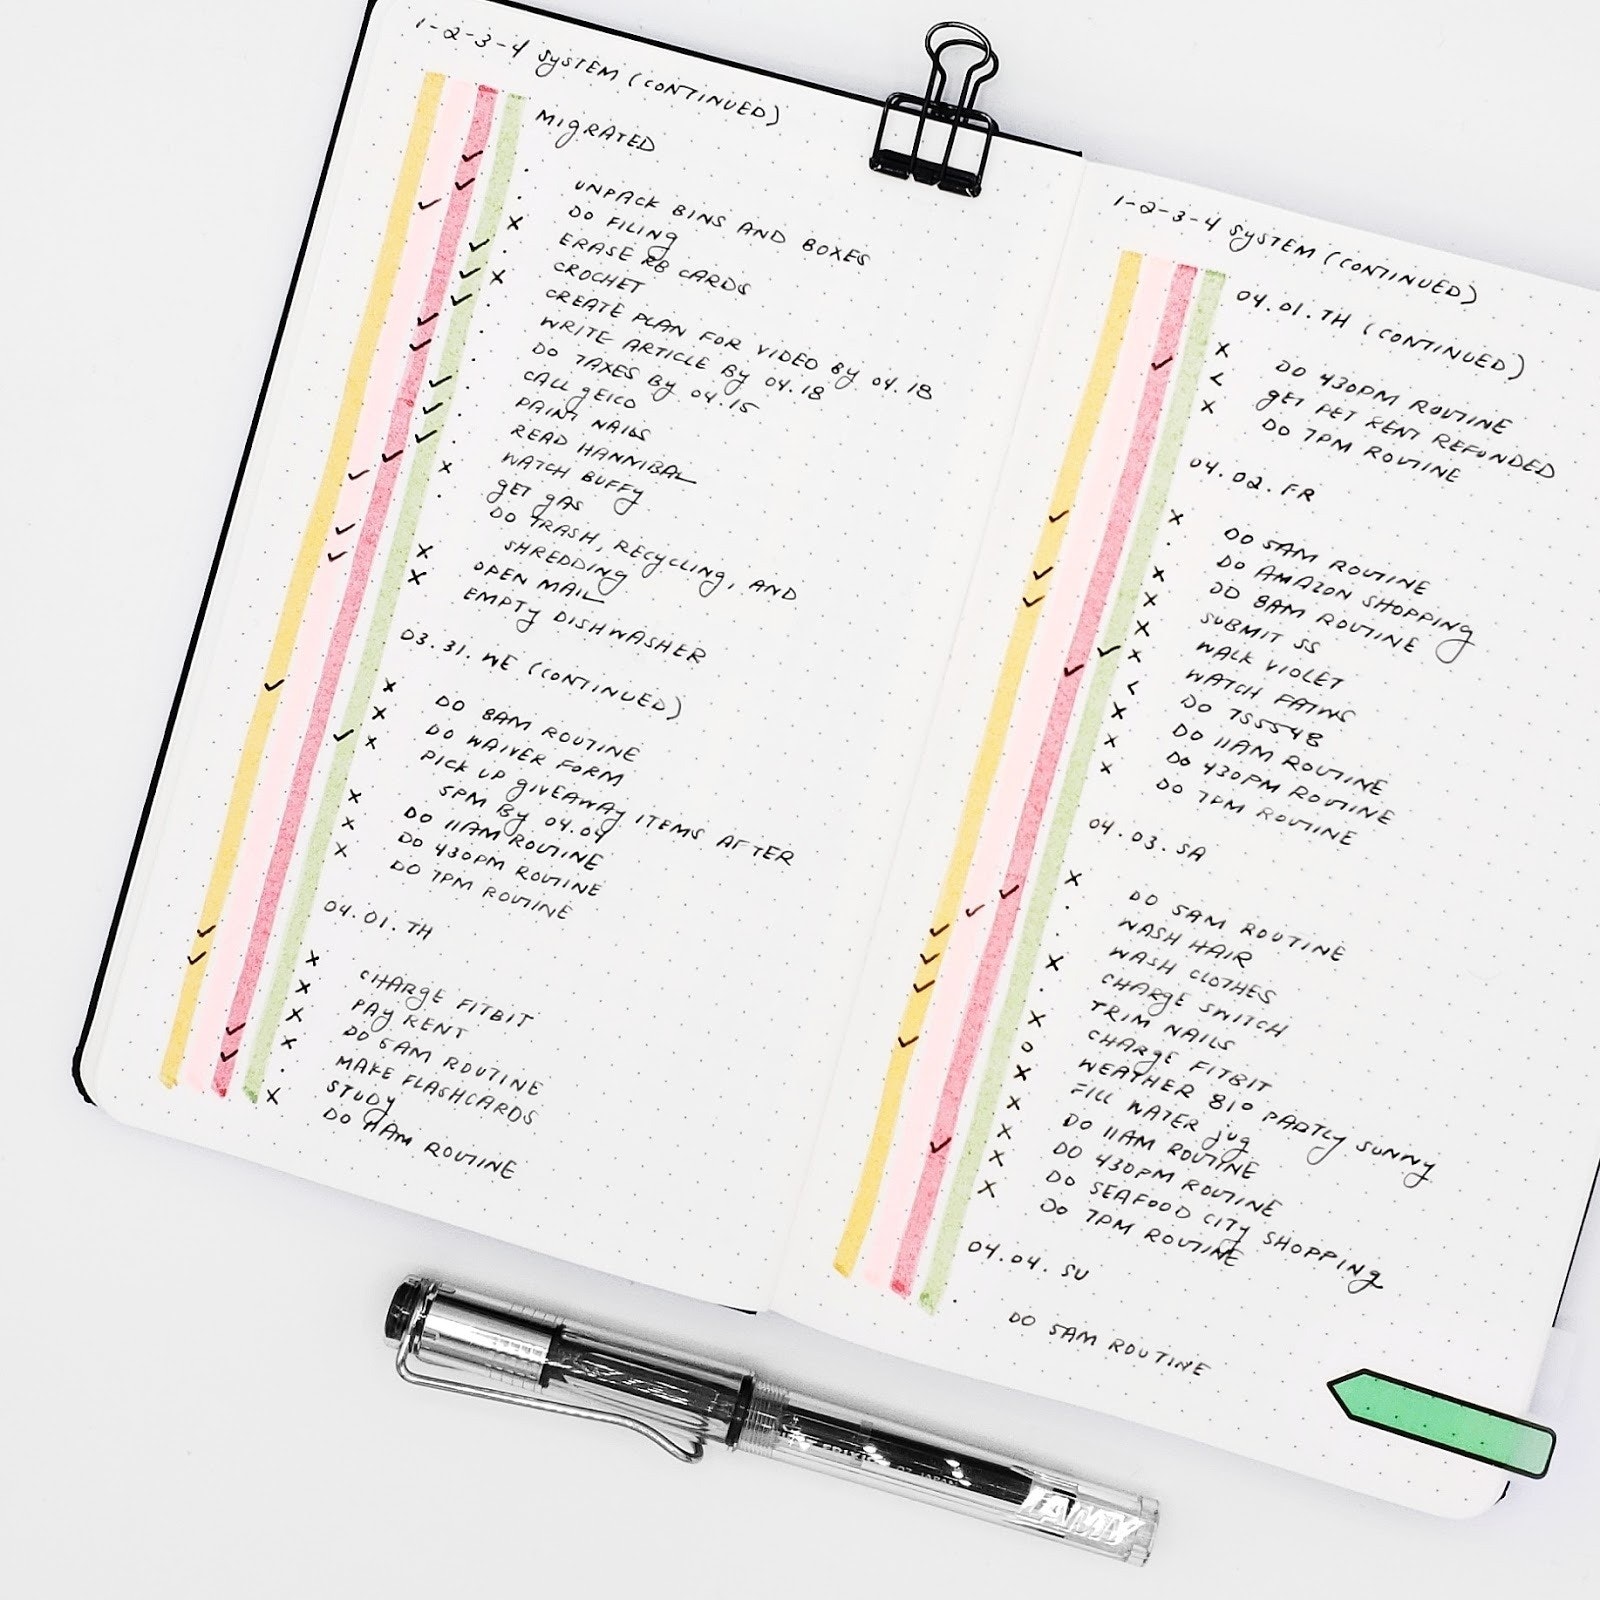 1-2-3-4 SYSTEM (CONTINUED)
MIGRATED
✓ . UNPACK BINS AND BOXES
✓ . DO FILING
✓ x ERASE RB CARDS
✓ . CROCHET
✓ x CREATE PLAN FOR VIDEO BY 04.18
✓ . WRITE ARTICLE BY 04.18
✓ . DO TAXES BY 04.15
✓ . CALL GEICO
✓ . PAINT NAILS
✓ . READ HANNIBAL
✓ . WATCH BUFFY
✓ x GET GAS
✓ . DO TRASH, RECYCLING, AND
SHREDDING
✓ x OPEN MAIL
✓ x EMPTY DISHWASHER
03.31.WE (CONTINUED)
x DO 8AM ROUTINE
✓ x DO WAIVER FORM
✓ x PICK UP GIVEAWAY ITEMS AFTER
5PM BY 04.04
x DO 11AM ROUTINE
x DO 430PM ROUTINE
x DO 7PM ROUTINE
04.01.TH
✓ x CHARGE FITBIT
✓ x PAY RENT
x DO 5AM ROUTINE
✓ x MAKE FLASHCARDS
✓ . STUDY
x DO 11AM ROUTINE
1-2-3-4 SYSTEM (CONTINUED)
04.01.TH (CONTINUED)
x DO 430PM ROUTINE
✓ < GET PET RENT REFUNDED
x DO 7PM ROUTINE
04.02.FR
x DO 5AM ROUTINE
✓ . DO AMAZON SHOPPING
x DO 8AM ROUTINE
✓ x SUBMIT SS
✓ x WALK VIOLET
✓ x WATCH FATWS
✓ < DO 755548
x DO 11AM ROUTINE
x DO 430PM ROUTINE
x DO 7PM ROUTINE
04.03.SA
x DO 5AM ROUTINE
✓ . WASH HAIR
✓ . WASH CLOTHES
✓ x CHARGE SWITCH
✓ . TRIM NAILS
✓ x CHARGE FITBIT
o WEATHER 81° PARTLY SUNNY
✓ x FILL WATER JUG
x DO 11AM ROUTINE
x DO 430PM ROUTINE
✓ x DO SEAFOOD CITY SHOPPING
x DO 7PM ROUTINE
04.04.SU
. DO 5AM ROUTINE
LAMY